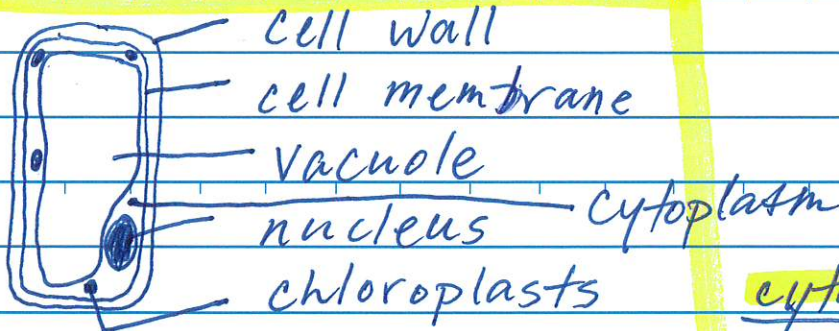 cell wall
cell membrane
vacuole
cytoplasm
nucleus
chloroplasts